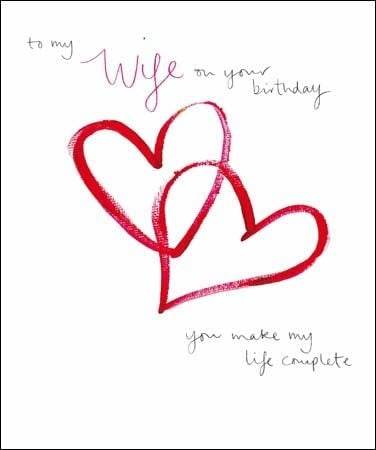 to my Wife on your
birthday
you make my
life complete